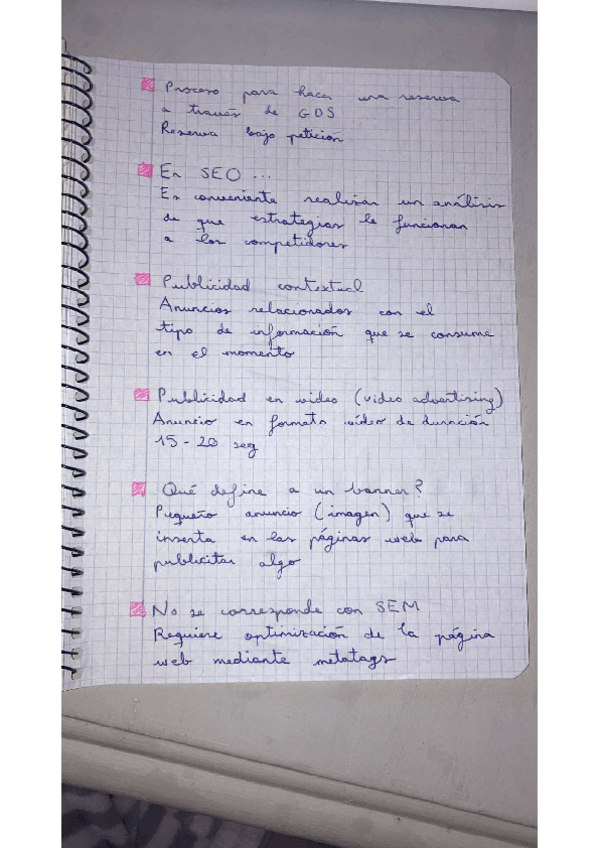 Proceso para hacer una reserva
a través de GDS
Reserva bajo petición
En SEO ...
Es conveniente realizar un análisis
de que estrategias le funcionan
a los competidores
Publicidad contextual
Anuncios relacionados con el
tipo de información que se consume
en el momento
Publicidad en video (video advertising)
Anuncio en formato vídeo de duración
15-20 seg
Qué define a un banner?
Pequeño anuncio (imagen) que se
inserta en las páginas web para
publicitar algo
No se corresponde con SEM
Requiere optimización de la página
web mediante metatags